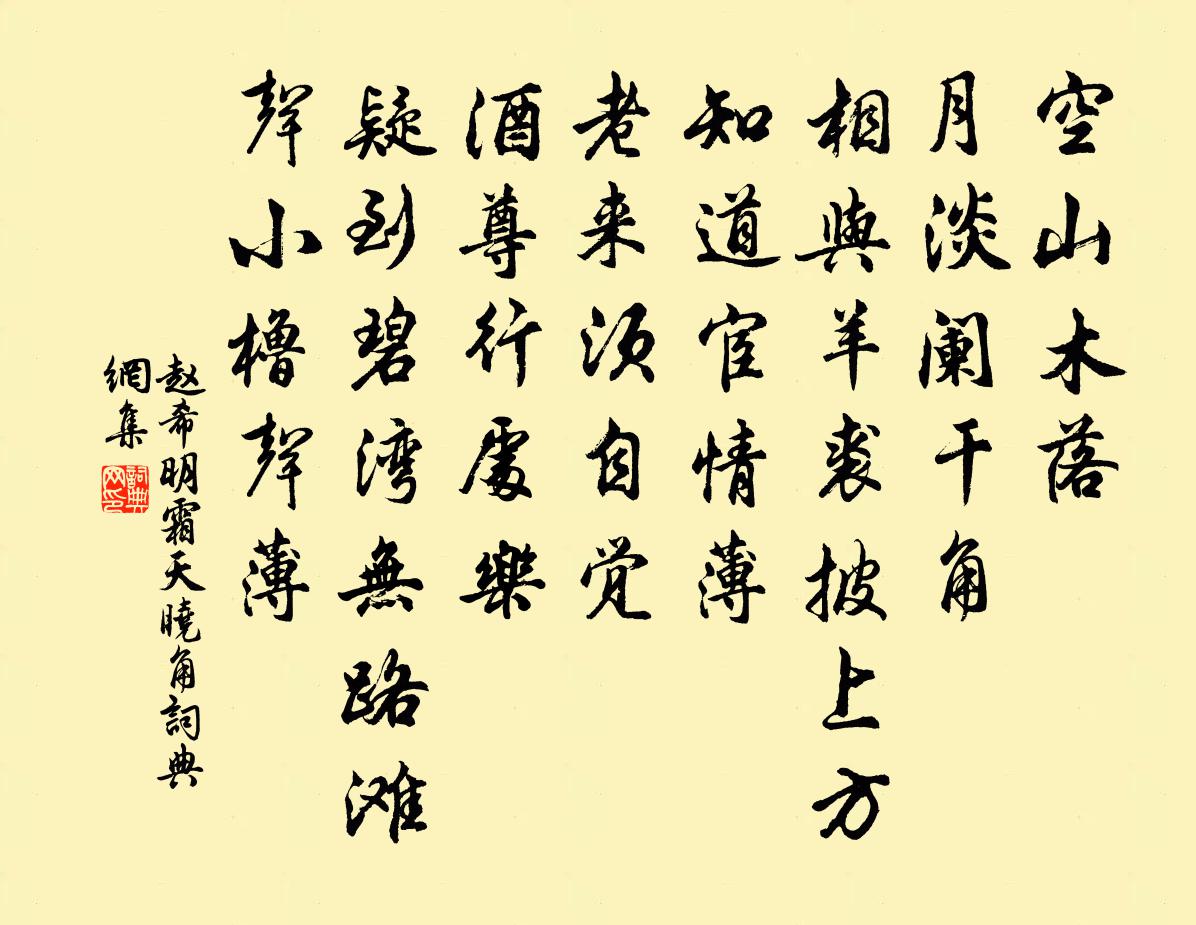 空山木落
月淡阑干角
相與羊裘披上方
知道宦情薄
老来须自觉
酒尊行處樂
疑到碧湾無路滩
聲小櫓聲薄
赵希明霜天曉角詞典
網集
詞典网印